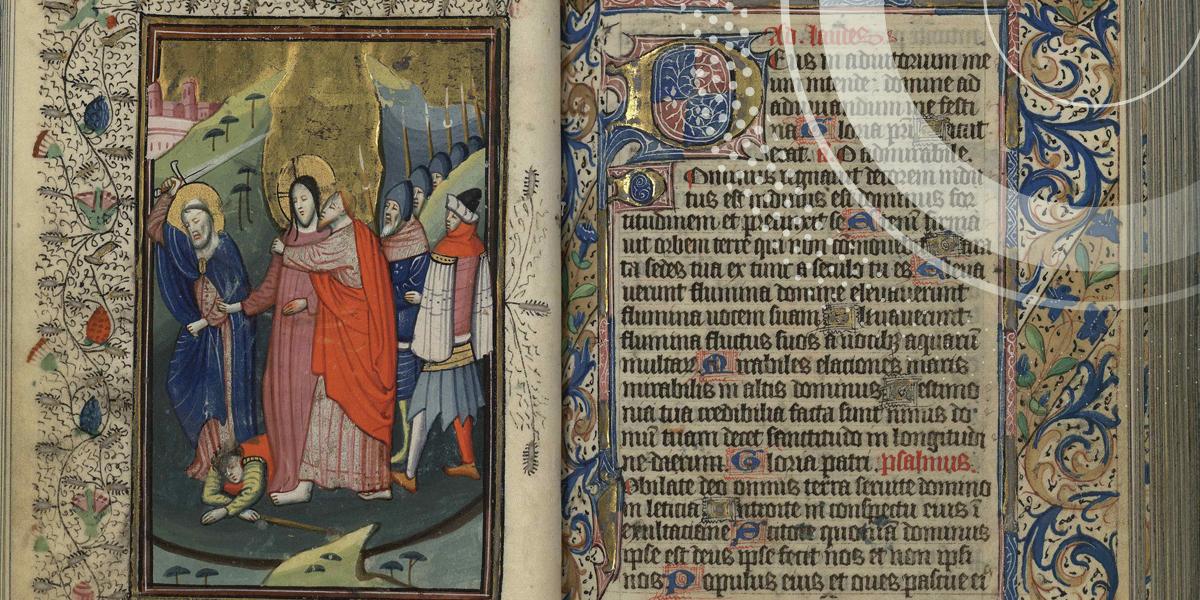 Ad. laudes.
Eus in adiutorium me
um intende. domine ad
adiuuandum me festi
na G loria pri Sicut
erat. a. O admirabile.
Ominus regnauit decorem indu
tus est indutus est dominus for
titudinem et precinxit se A tenim firma
uit orbem terre qui non commoue
ta sedes tua ex tunc a seculo tu es E leua
uerunt flumina domine eleuauerunt
flumina uocem suam E leuauerunt
flumina fluctus suos a uocibz aquarū
multar M irabiles elaciones maris
mirabilis in altis dominus T estimo
nia tua credibilia facta sunt nimis do
mū tuam decet sanctitudo in longitudī
ne dierum. G loria patri. psalmus.
Vbilate deo omnis terra seruite domino
in leticia I ntroite in conspectu eius ī
exultacione S citote quoniā dominus
ipse est deus ipse fecit nos et non ipsi
nos P opulus eius et oues pascue ei